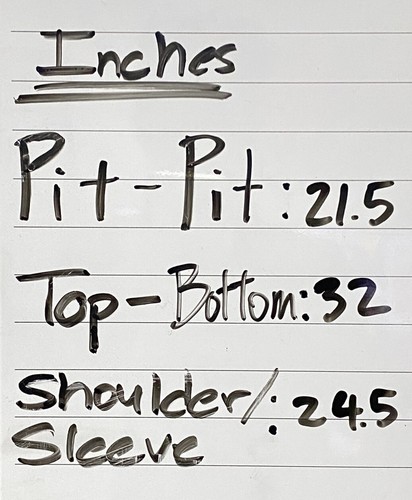 Inches
Pit-Pit: 21.5
Top-Bottom: 32
Shoulder/: 24.5
Sleeve